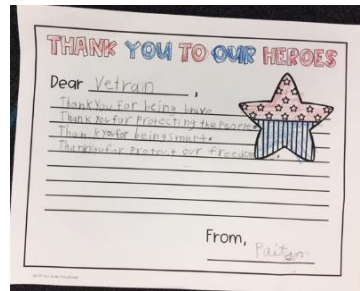 THANK YOU TO OUR HEROES
Dear Vetrain,
Thank You for being brave
Thank You fur Protecting the People
Thank you for being smart.
Thank you far Protect our freedom
From,
Paitson